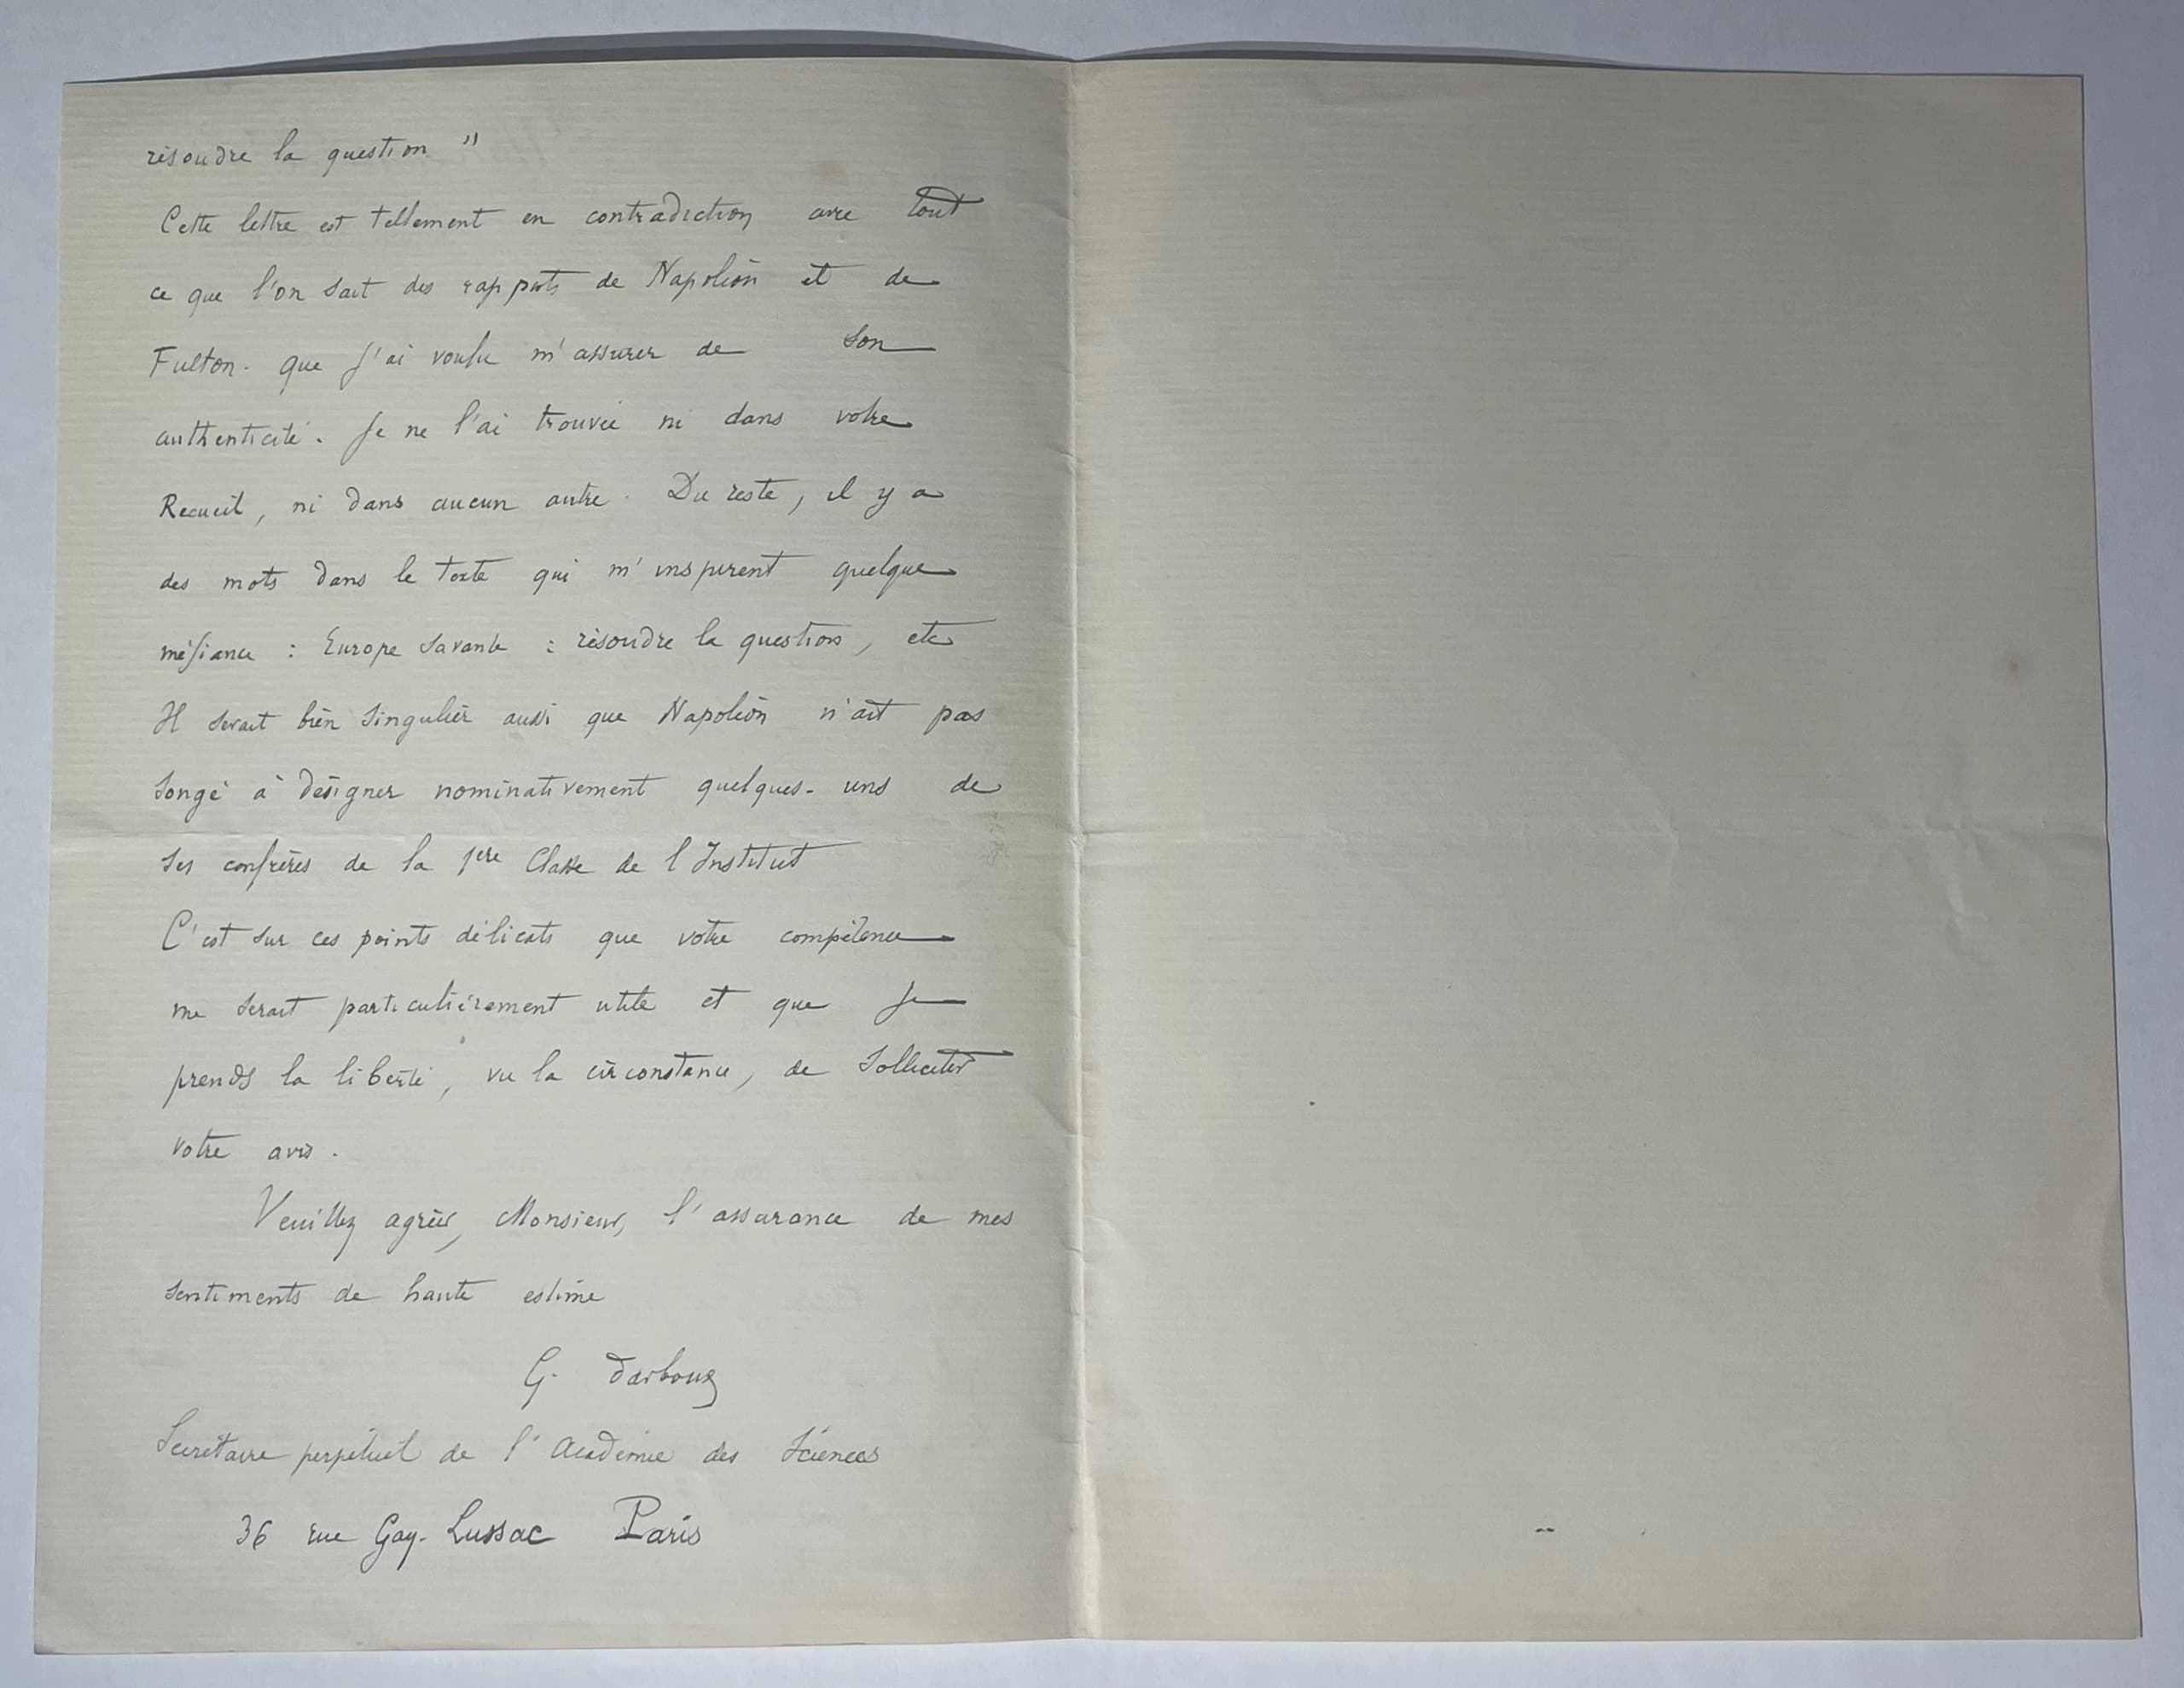 résoudre la question "
Cette lettre est tellement en contradiction avec tout
ce que l'on sait des rapports de Napoléon et de
Fulton. que j'ai voulu m'assurer de son
authenticité. Je ne l'ai trouvée ni dans votre
Recueil, ni dans aucun autre. Du reste, il y a
des mots dans le texte qui m'inspirent quelque
méfiance : Europe savante : résoudre la question, etc
Il serait bien singulier aussi que Napoléon n'ait pas
songé à désigner nominativement quelques-uns de
ses confrères de la 1ère Classe de l'Institut
C'est sur ces points délicats que votre compétence
me serait particulièrement utile et que je
prends la liberté, vu la circonstance, de solliciter
votre avis.
Veuillez agréer, Monsieur, l'assurance de mes
sentiments de haute estime
G. Darboux
Secrétaire perpétuel de l'Académie des Sciences
36 rue Gay-Lussac Paris